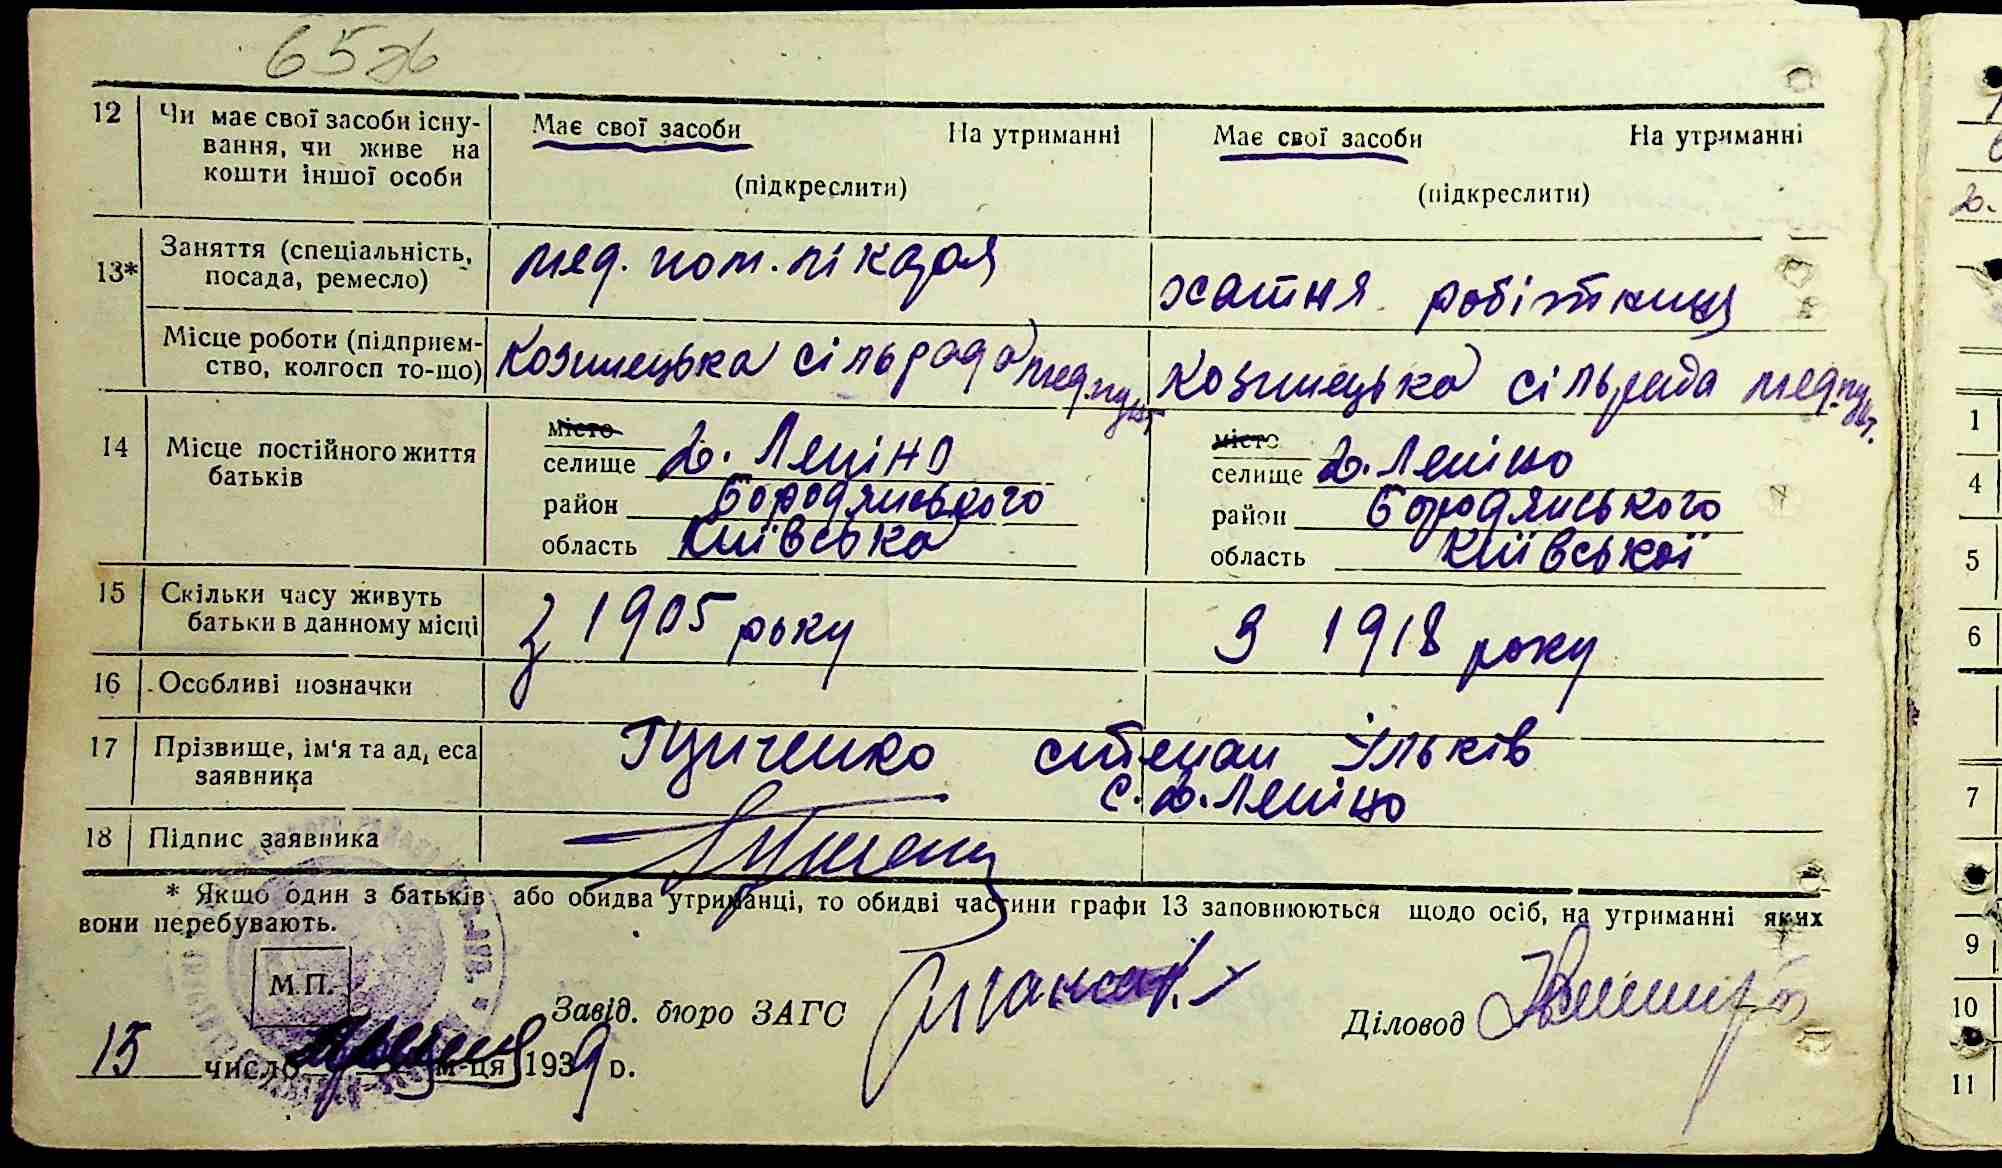 65 зв
12 Чи має свої засоби існу- Має свої засоби На утриманні Має свої засоби На утриманні
вання, чи живе на
кошти іншої особи (підкреслити) (підкреслити)
13* Заняття (спеціальність, мед. пом. лікаря хатня робітниця
посада, ремесло)
Місце роботи (підприєм- Козинецька сільрада медпункт Козинецька сільрада медпункт.
ство, колгосп то-що)
14 Місце постійного життя місто місто
батьків селище селище
район Бородянського район Бородянського
область Київська область Київської
15 Скільки часу живуть з 1905 року З 1918 року
батьки в данному місці
16 Особливі позначки
17 Прізвище, ім'я та адреса Гузиченко Степан Ільків
заявника
18 Підпис заявника
* Якщо один з батьків або обидва утриманці, то обидві частини графи 13 заповнюються щодо осіб, на утриманні яких
вони перебувають.
М.П.
Завід. бюро ЗАГС Діловод
15 число м-ця 1939 р.
1
4
5
6
7
9
10
11